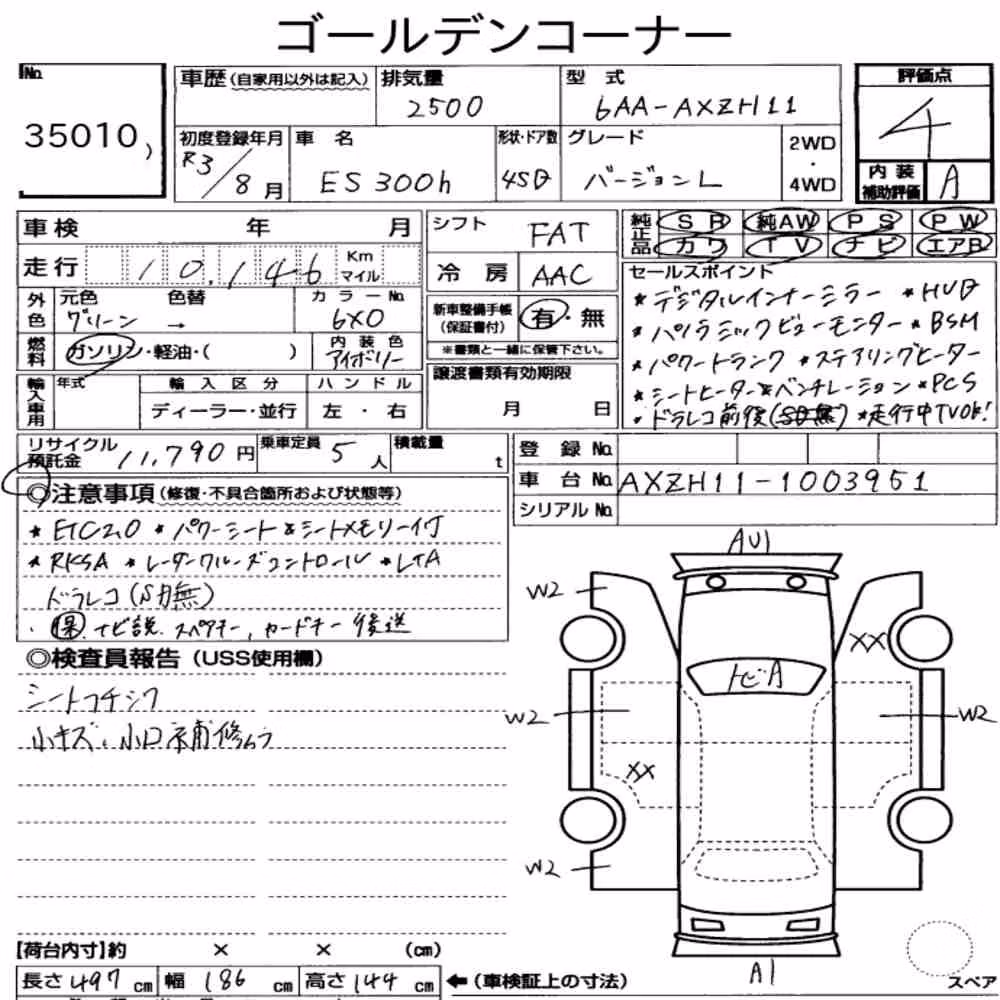 ゴールデンコーナー
No.
35010
車歴 (自家用以外は記入)
排気量
2500
型式
6AA-AXZH11
評価点
4
初度登録年月
R3/8月
車名
ES300h
形状・ドア数
4SD
グレード
バージョンL
2WD
・
4WD
内装
補助評価
A
車検 年 月
走行 10,146 Km
マイル
シフト
FAT
冷房 AAC
純正品 SR 純AW PS PW
カワ TV ナビ エアB
外色
元色 色替
グリーン →
カラーNo.
6X0
新車整備手帳
(保証書付)
有・無
※書類と一緒に保管下さい。
燃料 ガソリン・軽油・( )
内装色
アイボリー
セールスポイント
*デジタルインナーミラー *HUD
*パノラミックビューモニター *BSM
*パワートランク *ステアリングヒーター
*シートヒーター&ベンチレーション *PCS
*ドラレコ前後(SD無) *走行中TVOK!
輸入車用
年式
輸入区分
ディーラー・並行
ハンドル
左・右
譲渡書類有効期限
月 日
リサイクル
預託金
11,790円
乗車定員
5人
積載量
t
登録No.
車台No. AXZH11-1003951
シリアルNo.
◎注意事項(修復・不具合箇所および状態等)
*ETC2.0 *パワーシート&シートメモリー付
*RKSA *レーダークルーズコントロール *LTA
ドラレコ(SD無)
・保、ナビ説、スペアキー、カードキー後送
◎検査員報告(USS使用欄)
シートフチシワ
小キズ、小凹補修ムラ
AU1
W2
XX
トビA
W2
W2
XX
W2
A1
スペア
【荷台内寸】約 × × (cm)
長さ497cm 幅186cm 高さ144cm
←(車検証上の寸法)